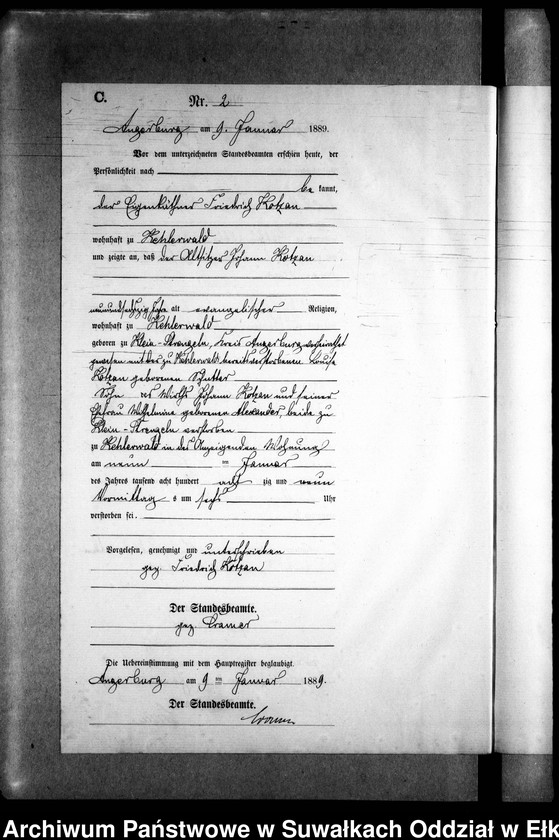 C.
Nr. 2
Angerburg am 9. Januar 1889.
Vor dem unterzeichneten Standesbeamten erschien heute, der
Persönlichkeit nach
be kannt,
der Eigenkäthner Friedrich Kotzan
wohnhaft zu Kehlerwald
und zeigte an, daß der Altsitzer Johann Kotzan
neunundsechzig Jahr alt evangelischer Religion,
wohnhaft zu Kehlerwald
geboren zu Klein-Strengeln, Kreis Angerburg, verheirathet
gewesen mit der zu Kehlerwald bereits verstorbenen Louise
Kotzan geborenen
Sohn des Wirths Johann Kotzan und seiner
Ehefrau Wilhelmine geborenen Alexander, beide zu
Klein-Strengeln verstorben
zu Kehlerwald in des Anzeigenden Wohnung
am neun ten Januar
des Jahres tausend acht hundert acht zig und neun
Vormittag s um sechs Uhr
verstorben sei.
Vorgelesen, genehmigt und unterschrieben
gez. Friedrich Kotzan
Der Standesbeamte.
gez. Cramer
Die Uebereinstimmung mit dem Hauptregister beglaubigt.
Angerburg am 9 ten Januar 1889.
Der Standesbeamte.
Cramer
Archiwum Państwowe w Suwałkach Oddział w Ełk